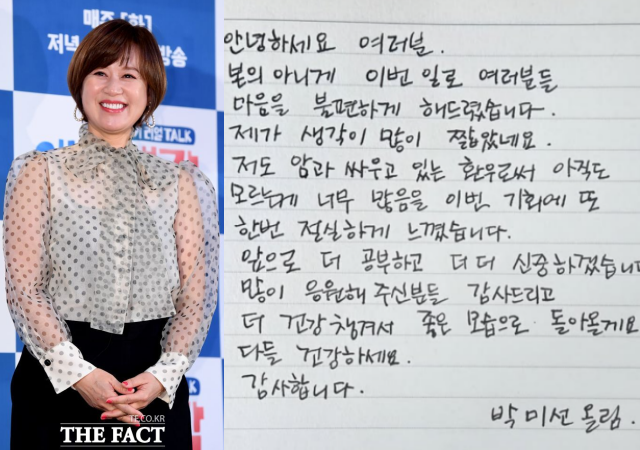 매주 [화]
저녁 방송
TALK
TALK
THE FACT
안녕하세요 여러분.
본의 아니게 이번 일로 여러분들
마음을 불편하게 해드렸습니다.
제가 생각이 많이 짧았네요.
저도 암과 싸우고 있는 환우로써 아직도
모르는게 너무 많음을 이번 기회에 또
한번 절실하게 느꼈습니다.
앞으로 더 공부하고 더 더 신중하겠습니
많이 응원해 주신분들 감사드리고
더 건강 챙겨서 좋은 모습으로 돌아올게요
다들 건강하세요.
감사합니다.
박미선 올림.